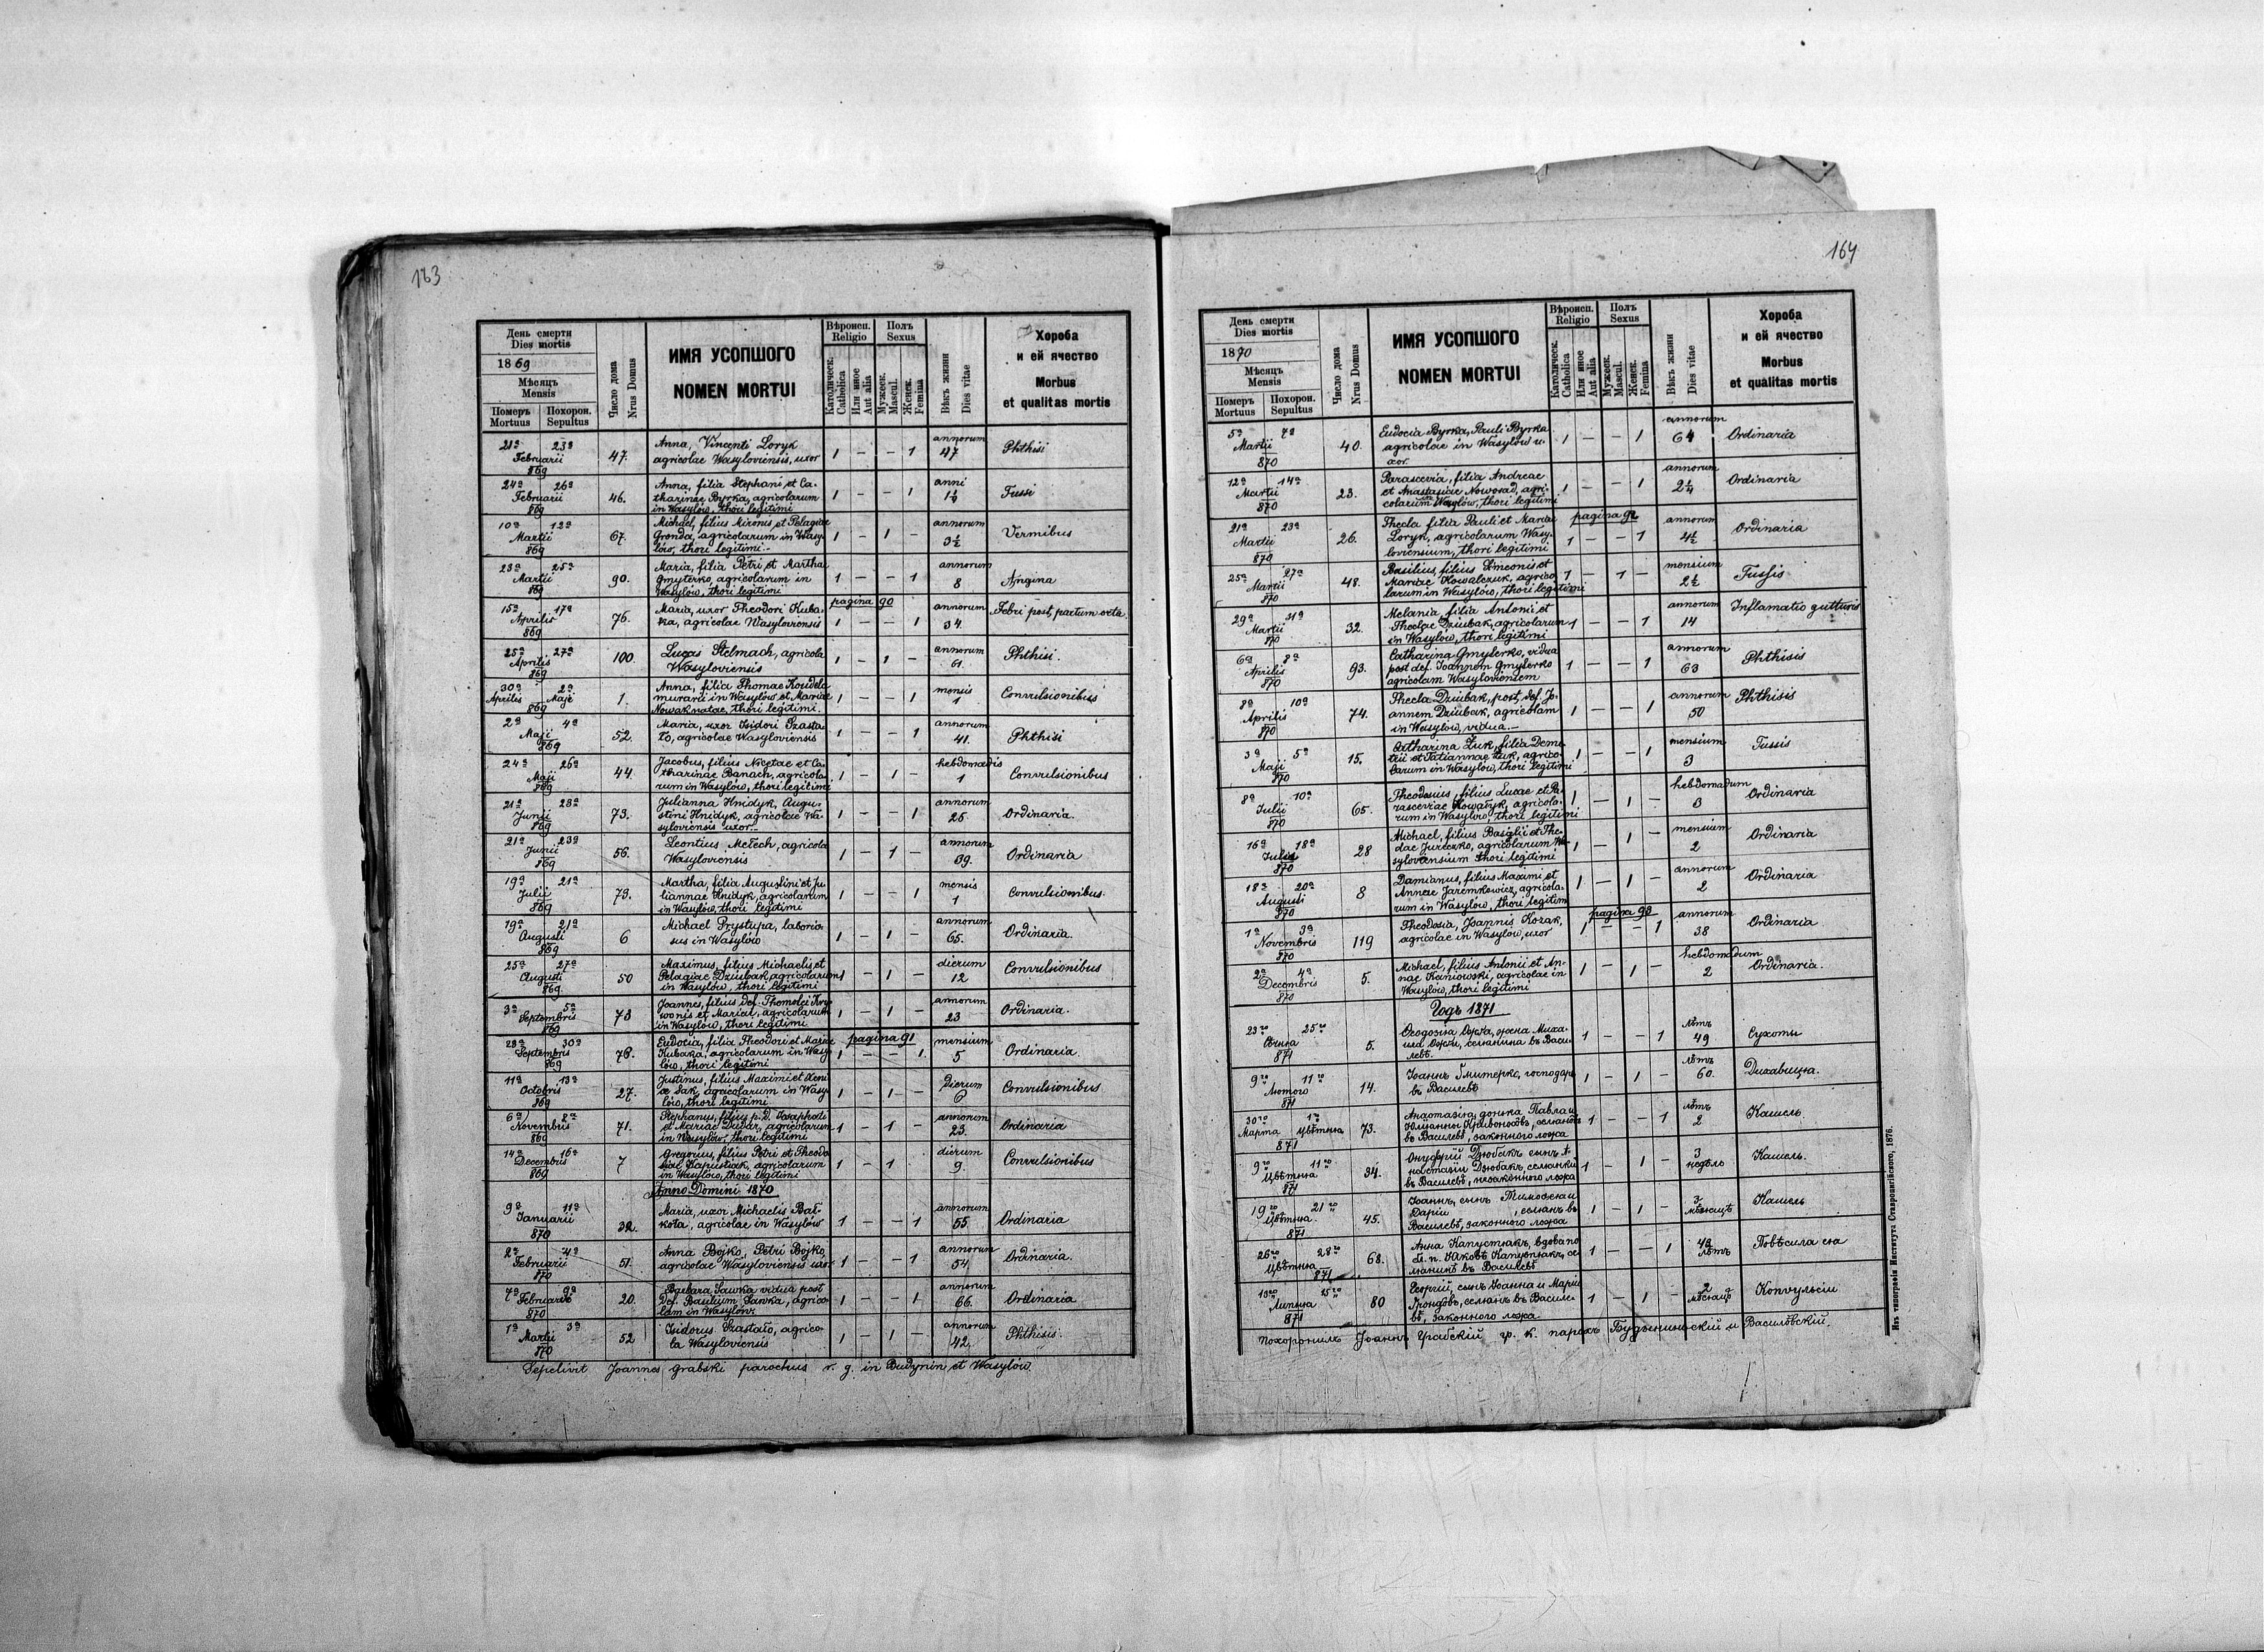 163
День смерти
Dies mortis
1869
Мѣсяць
Mensis
Померъ Похорон.
Mortuus Sepultus
Число дома
Nrus Domus
ИМЯ УСОПШОГО
NOMEN MORTUI
Вѣроисп.
Religio
Католическ.
Catholica
Или иное
Aut alia
Полъ
Sexus
Мужеск.
Mascul.
Женск.
Femina
Вѣкъ жизни
Dies vitae
Хороба
и ей ячество
Morbus
et qualitas mortis
21a 23a Februarii 869 47. Anna, Vincenti Loryk
agricolae Wasyloviensis, uxor 1 – – 1 annorum 47 Phthisi
24a 26a Februarii 869 46. Anna, filia Stephani et Ca-
tharinae Byrka, agricolarum
in Wasylów, thori legitimi 1 – – 1 anni 1¼ Tussi
10a 12a Martii 869 67. Michael, filius Mironis et Pelagiae
Gronda, agricolarum in Wasy-
lów, thori legitimi.- 1 – 1 – annorum 3½ Vermibus
23a 25a Martii 869 90. Maria, filia Petri et Martha
Gmyterko, agricolarum in
Wasylów, thori legitimi 1 – – 1 annorum 8 Angina
pagina 90
15a 17a Aprilis 869 76. Maria, uxor Theodori Kuba-
ka, agricolae Wasyloviensis 1 – – 1 annorum 34. Febri post partum orta.
25a 27a Aprilis 869 100. Lucas Stelmach, agricola
Wasyloviensis 1 – 1 – annorum 61. Phthisi.
30a Aprilis 2a Maji 869 1. Anna, filia Thomae Koudela
murarii in Wasylów et Mariae
Nowak natae, thori legitimi. 1 – – 1 mensis 1 Convulsionibus
2a 4a Maji 869 52. Maria, uxor Isidori Szasta-
ło, agricolae Wasyloviensis 1 – – 1 annorum 41. Phthisi
24a 26a Maji 869 44. Jacobus, filius Nicetae et Ca-
tharinae Banach, agricola-
rum in Wasylów, thori legitimi 1 – 1 – hebdomadis 1 Convulsionibus
21a 23a Junii 869 73. Julianna Hnidyk, Augu-
stini Hnidyk, agricolae Wa-
syloviensis uxor.- 1 – – 1 annorum 25 Ordinaria.
21a 23a Junii 869 56. Leontius Mełech, agricola
Wasyloviensis 1 – 1 – annorum 39. Ordinaria
19a 21a Julii 869 73. Martha, filia Augustini et Ju-
liannae Hnidyk, agricolarum
in Wasylów, thori legitimi 1 – – 1 mensis 1 Convulsionibus.
19a 21a Augusti 869 6 Michael Prystupa, laborio-
sus in Wasylów 1 – 1 – annorum 65. Ordinaria.
25a 27a Augusti 869. 50 Maximus, filius Michaelis et
Pelagiae Dziubak, agricolarum
in Wasylów, thori legitimi 1 – 1 – dierum 12 Convulsionibus
3a 5a Septembris 869 73 Joannes, filius def. Thomae
et Mariae, agricolarum
in Wasylów, thori legitimi 1 – 1 – annorum 23 Ordinaria.
pagina 91
28a 30a Septembris 869 76. Eudocia, filia Theodori et Mariae
Kubaka, agricolarum in Wasy-
lów, thori legitimi 1 – – 1. mensium 5 Ordinaria.
11a 13a Octobris 869 27. Justinus, filius Maximi et Xeni-
ae Sak, agricolarum in Wasy-
lów, thori legitimi 1 – 1 – dierum 6 Convulsionibus
6a 8a Novembris 869 71. Stephanus, filius p. d. Josaphati
et Mariae Dudar, agricolarum
in Wasylów, thori legitimi 1 – 1 – annorum 23. Ordinaria
14a 16a Decembris 869 7 Gregorius, filius Petri et Theodo-
siae Kapustiak, agricolarum
in Wasylów, thori legitimi 1 – 1 dierum 9. Convulsionibus
Anno Domini 1870
9a 11a Januarii 870 32. Maria, uxor Michaelis Bał-
kota, agricolae in Wasylów 1 – – 1 annorum 55 Ordinaria
2a 4a Februarii 870 51. Anna Bojko, Petri Bojko,
agricolae Wasyloviensis uxor 1 – – 1 annorum 54. Ordinaria.
7a 9a Februarii 870 20. Barbara Sawka vidua post
def. Basilium Sawka, agrico-
lam in Wasylów. 1 – – 1 annorum 66. Ordinaria
1a 3a Martii 870 52 Isidorus Szastało, agrico-
la Wasyloviensis 1 – 1 – annorum 42. Phthisis.
Sepelivit Joannes Grabski parochus r. g. in Budynin et Wasylów.
164
День смерти
Dies mortis
1870
Мѣсяць
Mensis
Померъ Похорон.
Mortuus Sepultus
Число дома
Nrus Domus
ИМЯ УСОПШОГО
NOMEN MORTUI
Вѣроисп.
Religio
Католическ.
Catholica
Или иное
Aut alia
Полъ
Sexus
Мужеск.
Mascul.
Женск.
Femina
Вѣкъ жизни
Dies vitae
Хороба
и ей ячество
Morbus
et qualitas mortis
5a 7a Martii 870 40. Eudocia Byrka, Pauli Byrka
agricolae in Wasylów u-
xor. 1 – – 1 annorum 64 Ordinaria
12a 14a Martii 870 23. Parascevia, filia Andreae
et Anastasiae Nowosad, agri-
colarum Wasylów, thori legitimi 1 – – 1 annorum 2¼ Ordinaria
pagina 92
21a 23a Martii 870 26. Thecla filia Pauli et Mariae
Loryk, agricolarum Wasy-
loviensium, thori legitimi 1 – – 1 annorum 4½ Ordinaria
25a 27a Martii 870 48. Basilius, filius Simeonis et
Mariae Kowalczuk, agrico-
larum in Wasylów, thori legitimi 1 – 1 – mensium 2½ Tussis
29a 31a Martii 870 32. Melania, filia Antonii et
Theclae Dziubak, agricolarum
in Wasylów, thori legitimi 1 – – 1 annorum 14 Inflamatio gutturis
6a 8a Aprilis 870 93. Catharina Gmyterko, vidua
post def. Joannem Gmyterko
agricolam Wasyloviensem 1 – – 1 annorum 63 Phthisis
8a 10a Aprilis 870 74. Thecla Dziubak, post def. Jo-
annem Dziubak, agricolam
in Wasylów, vidua.- 1 – – 1 annorum 50 Phthisis
3a 5a Maji 870 15. Catharina Żuk, filia Deme-
trii et Tatiannae Żuk, agrico-
larum in Wasylów, thori legitimi 1 – – 1 mensium 3 Tussis
8a 10a Julii 870 65. Theodosius, filius Lucae et Pa-
rasceviae Kowałyk, agricola-
rum in Wasylów, thori legitimi 1 – 1 – hebdomadum 3 Ordinaria
16a 18a Julii 870 28 Michael, filius Basilii et The-
clae Jureczko, agricolarum Wa-
syloviensium thori legitimi 1 – 1 – mensium 2 Ordinaria
18a 20a Augusti 870 8 Damianus, filius Maximi et
Annae Jaremkowicz, agricola-
rum in Wasylów, thori legitimi 1 – 1 – annorum 2 Ordinaria
pagina 93
1a 3a Novembris 870 119 Theodosia, Joannis Kozak,
agricolae in Wasylów, uxor 1 – – 1 annorum 38 Ordinaria
2a 4a Decembris 870 5. Michael, filius Antonii et An-
nae Kaniowski, agricolae in
Wasylów, thori legitimi 1 – 1 – hebdomadum 2 Ordinaria.
Годъ 1871
23го 25го Сѣчня 871 5. Ѳеодозіа, жена Миха-
ила, селянина въ Васи-
левѣ. 1 – – 1 лѣтъ 49 Сухоты
9го 11го Лютого 871 14. Іоаннъ Гмитерко, господарь
въ Василевѣ 1 – 1 – лѣтъ 60. Дихавица.
30го Марта 1го Цвѣтня 871 73. Анастазіа, донька Павла и
Юліанны Кривоносовъ, селянъ
въ Василевѣ, законного ложа 1 – – 1 лѣтъ 2 Кашель.
9го 11го Цвѣтня 871 34. Онуфрій Дзюбакъ сынъ А-
настазіи Дзюбакъ, селянки
въ Василевѣ, незаконного ложа 1 – 1 – 3 недѣль Кашель.
19го 21го Цвѣтня 871 45. Іоаннъ, сынъ Тимоѳеа и
Даріи, селянъ въ
Василевѣ, законного ложа 1 – 1 – 3 мѣсяцѣ Кашель
26го 28го Цвѣтня 871 68. Анна Капустякъ, вдова по
бл. п. Яковѣ Капустякъ, се-
лянинѣ въ Василевѣ 1 – – 1 лѣтъ Повѣсила ся
25го Липня 871 80 Георгій, сынъ Іоанна и Маріи
Грондовъ, селянъ въ Василе-
вѣ, законного ложа 1 – 1 – 2 мѣсяцѣ Конвульсіи
Похоронилъ Іоаннъ Грабскій гр. к. парохъ Будынинскій и Василѣвскій.
Изъ типографіи Института Ставропигійского, 1876.